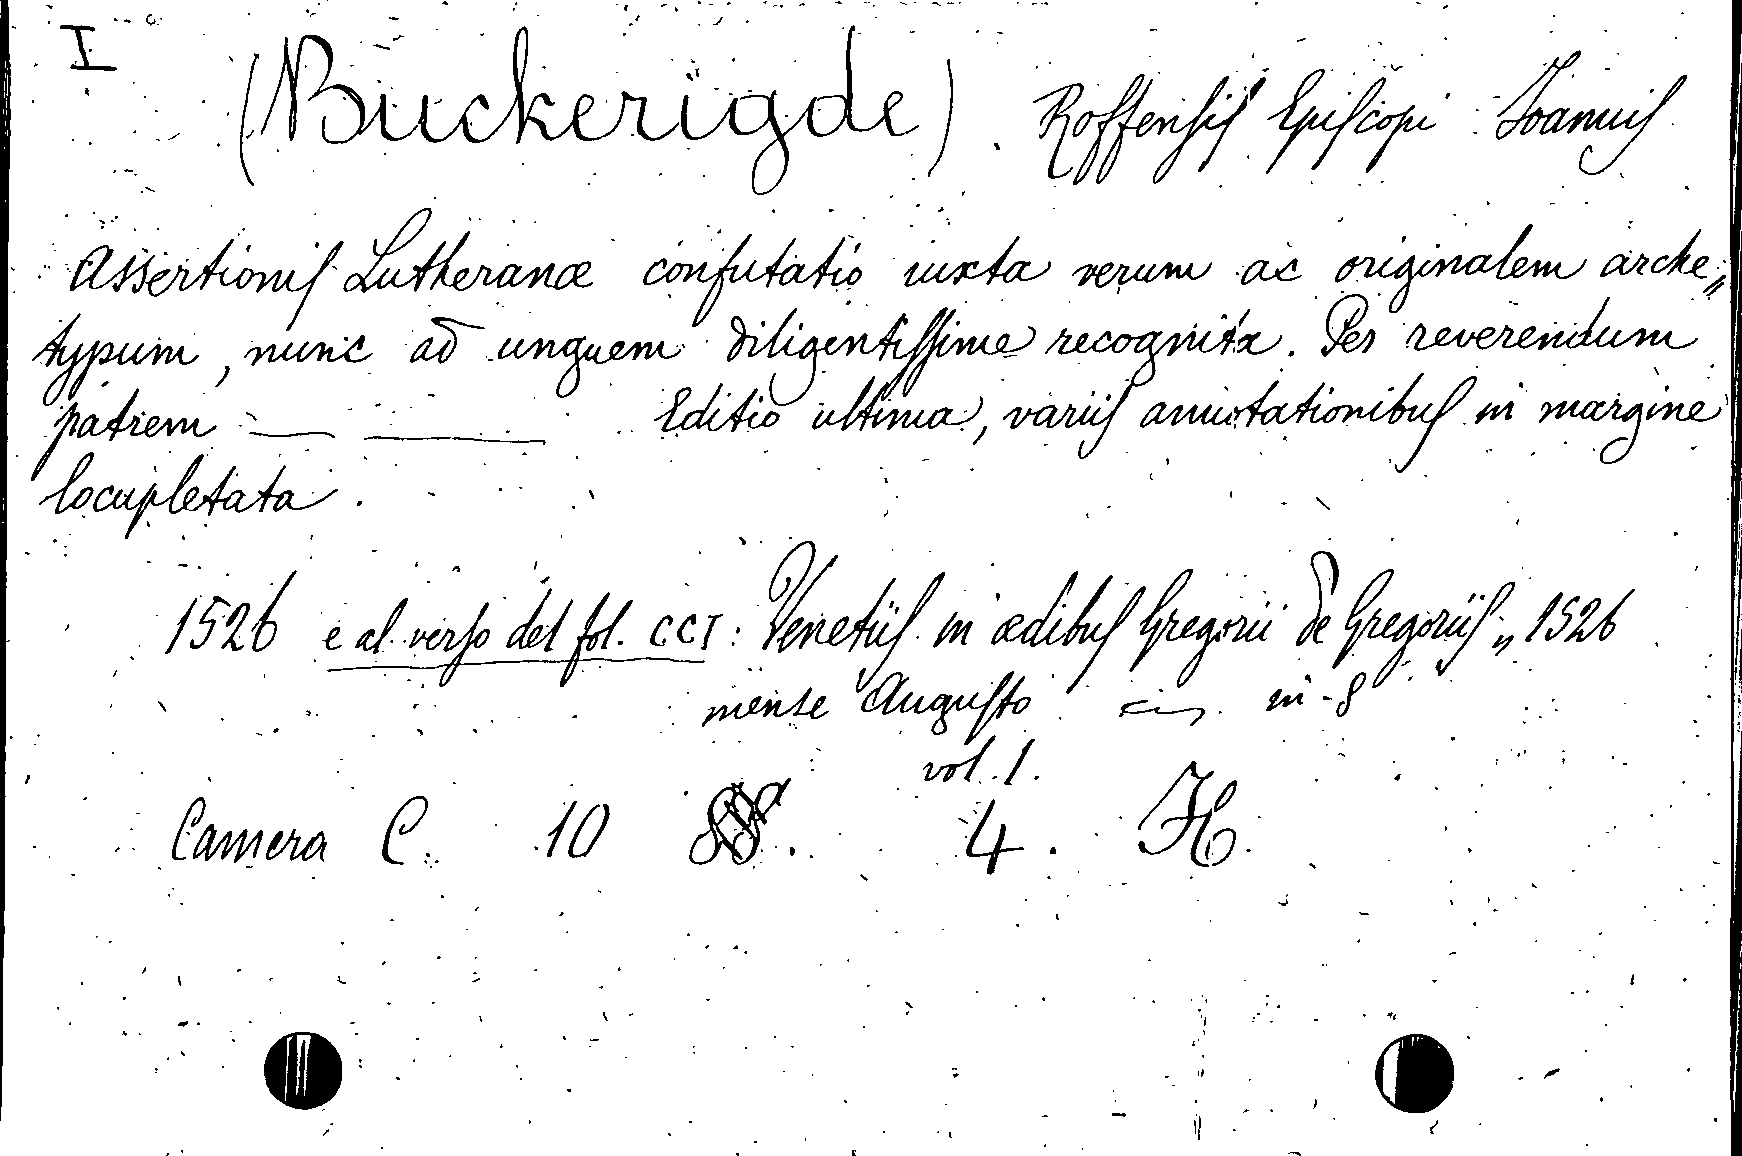 I
(Buckerigde). Roffensis Episcopi Ioannis
Assertionis Lutheranæ confutatio iuxta verum ac originalem arche„
typum, nunc ad unguem diligentissime recognita. Per reverendum
patrem — — Editio ultima, variis annotationibus in margine
locupletata.
1526 e al verso del fol. CCI: Venetiis in ædibus Gregorii de Gregoriis„ 1526
mense Augusto in-8
vol. 1.
Camera C. 10 4. H.